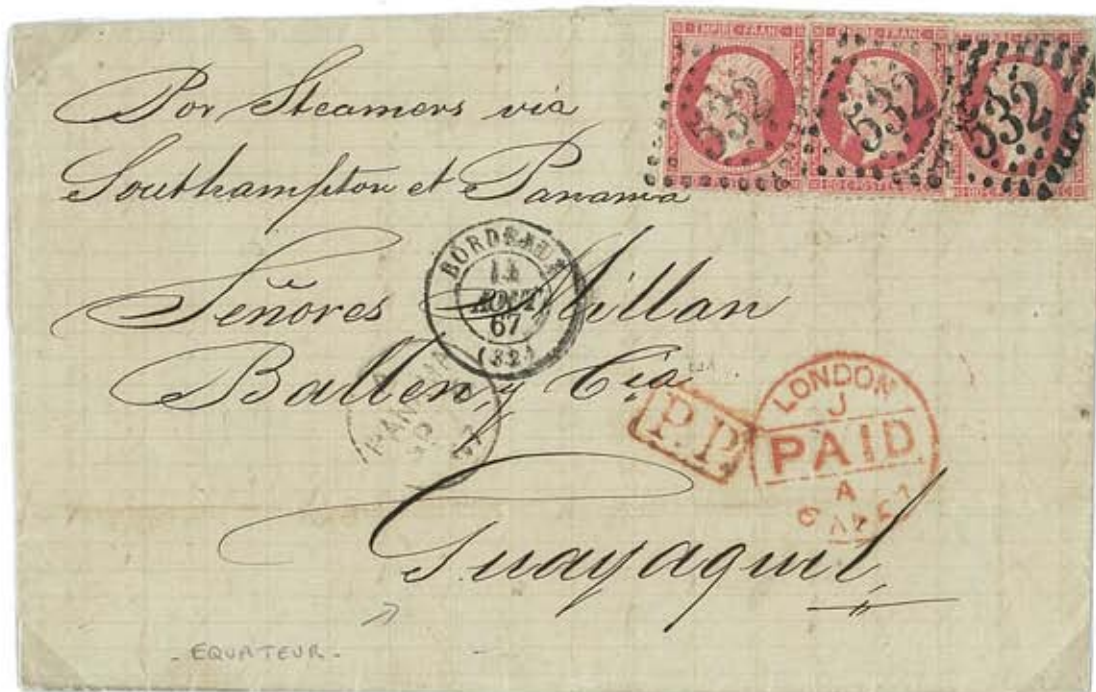 EMPIRE FRANC
532 532 532
Por Steamers via
Southampton et Panama
BORDEAUX
AOUT
67
(32)
Señores Millan
Ballen y Cia
PANAMA
P.P.
LONDON
J
PAID
A
Guayaquil
- EQUATEUR -